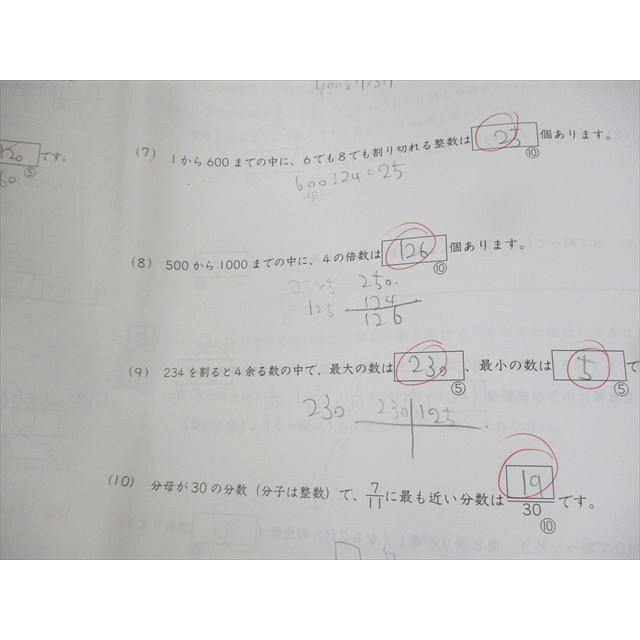 120 です。
⑤
(7) 1から600までの中に、6でも8でも割り切れる整数は 25 個あります。
⑩
600÷24=25
(8) 500から1000までの中に、4の倍数は 126 個あります。
⑩
250.
125 124
126
(9) 234を割ると4余る数の中で、最大の数は 230 、最小の数は 5 で
⑤ ⑤
230 230 125
(10) 分母が30の分数（分子は整数）で、7/11に最も近い分数は 19/30 です。
⑩